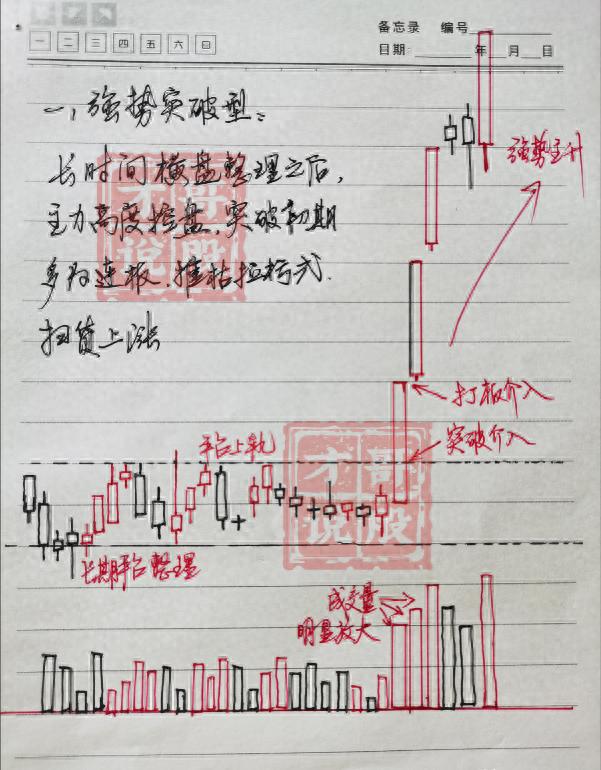 备忘录 编号
一 二 三 四 五 六 日
日期: 年 月 日
一，强势突破型：
长时间横盘整理之后，
主力高度控盘，突破初期
多为连板，摧枯拉朽式
扫货上涨
才哥
说股
强势主升
打板介入
突破介入
平台上轨
才哥
说股
长期平台整理
成交量
明显放大